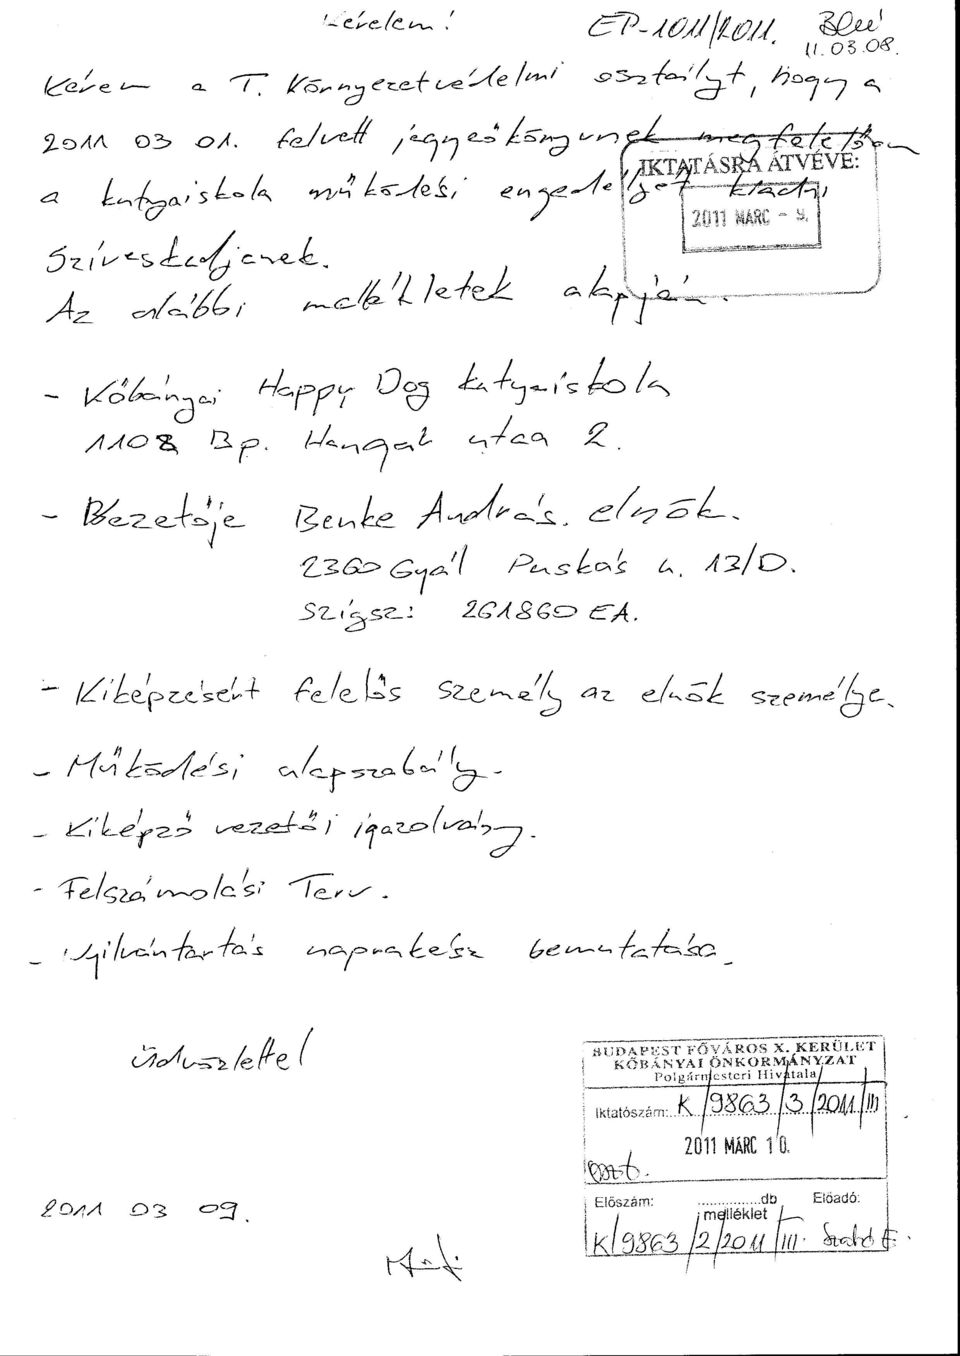 Kérelem!
EP-1011/2011.
11.03.08.
Kérem a T. Környezetvédelmi osztályt, hogy a
2011 03 01. felvett jegyzőkönyvnek megfelelően
IKTATÁSRA ÁTVÉVE:
a kutyaiskola működési engedélyét kiadni
2011 MÁRC - 9.
Szíveskedjenek.
Az alábbi mellékletek alapján.
- Kőbányai Happy Dog kutyaiskola
1108 Bp. Hangár utca 2.
- Vezetője Benke András. elnök.
2360 Gyál Puskás u. 13/D.
Szigsz: 261860 EA.
- Kiképzésért felelős személy az elnök személye.
- Működési alapszabály.
- Kiképző vezetői igazolvány.
- Felszámolási Terv.
- Nyilvántartás naprakész bemutatása.
üdvözlettel
BUDAPEST FŐVÁROS X. KERÜLET
KŐBÁNYAI ÖNKORMÁNYZAT
Polgármesteri Hivatala
Iktatószám: K/9863/3/2011/III
2011 MÁRC 10.
Előszám: ..............db melléklet Előadó:
K/9863/2/2011/III. Szabó E.
2011 03 09.